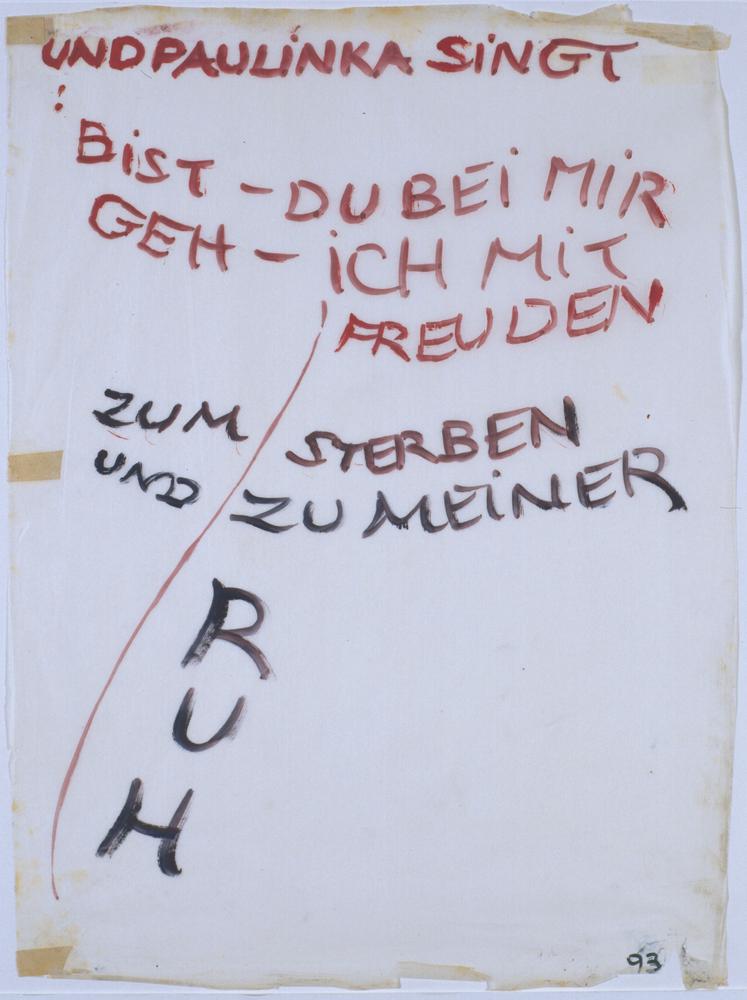 UND PAULINKA SINGT
:
BIST - DU BEI MIR
GEH - ICH MIT
FREUDEN
ZUM STERBEN
UND ZU MEINER
R
U
H
93